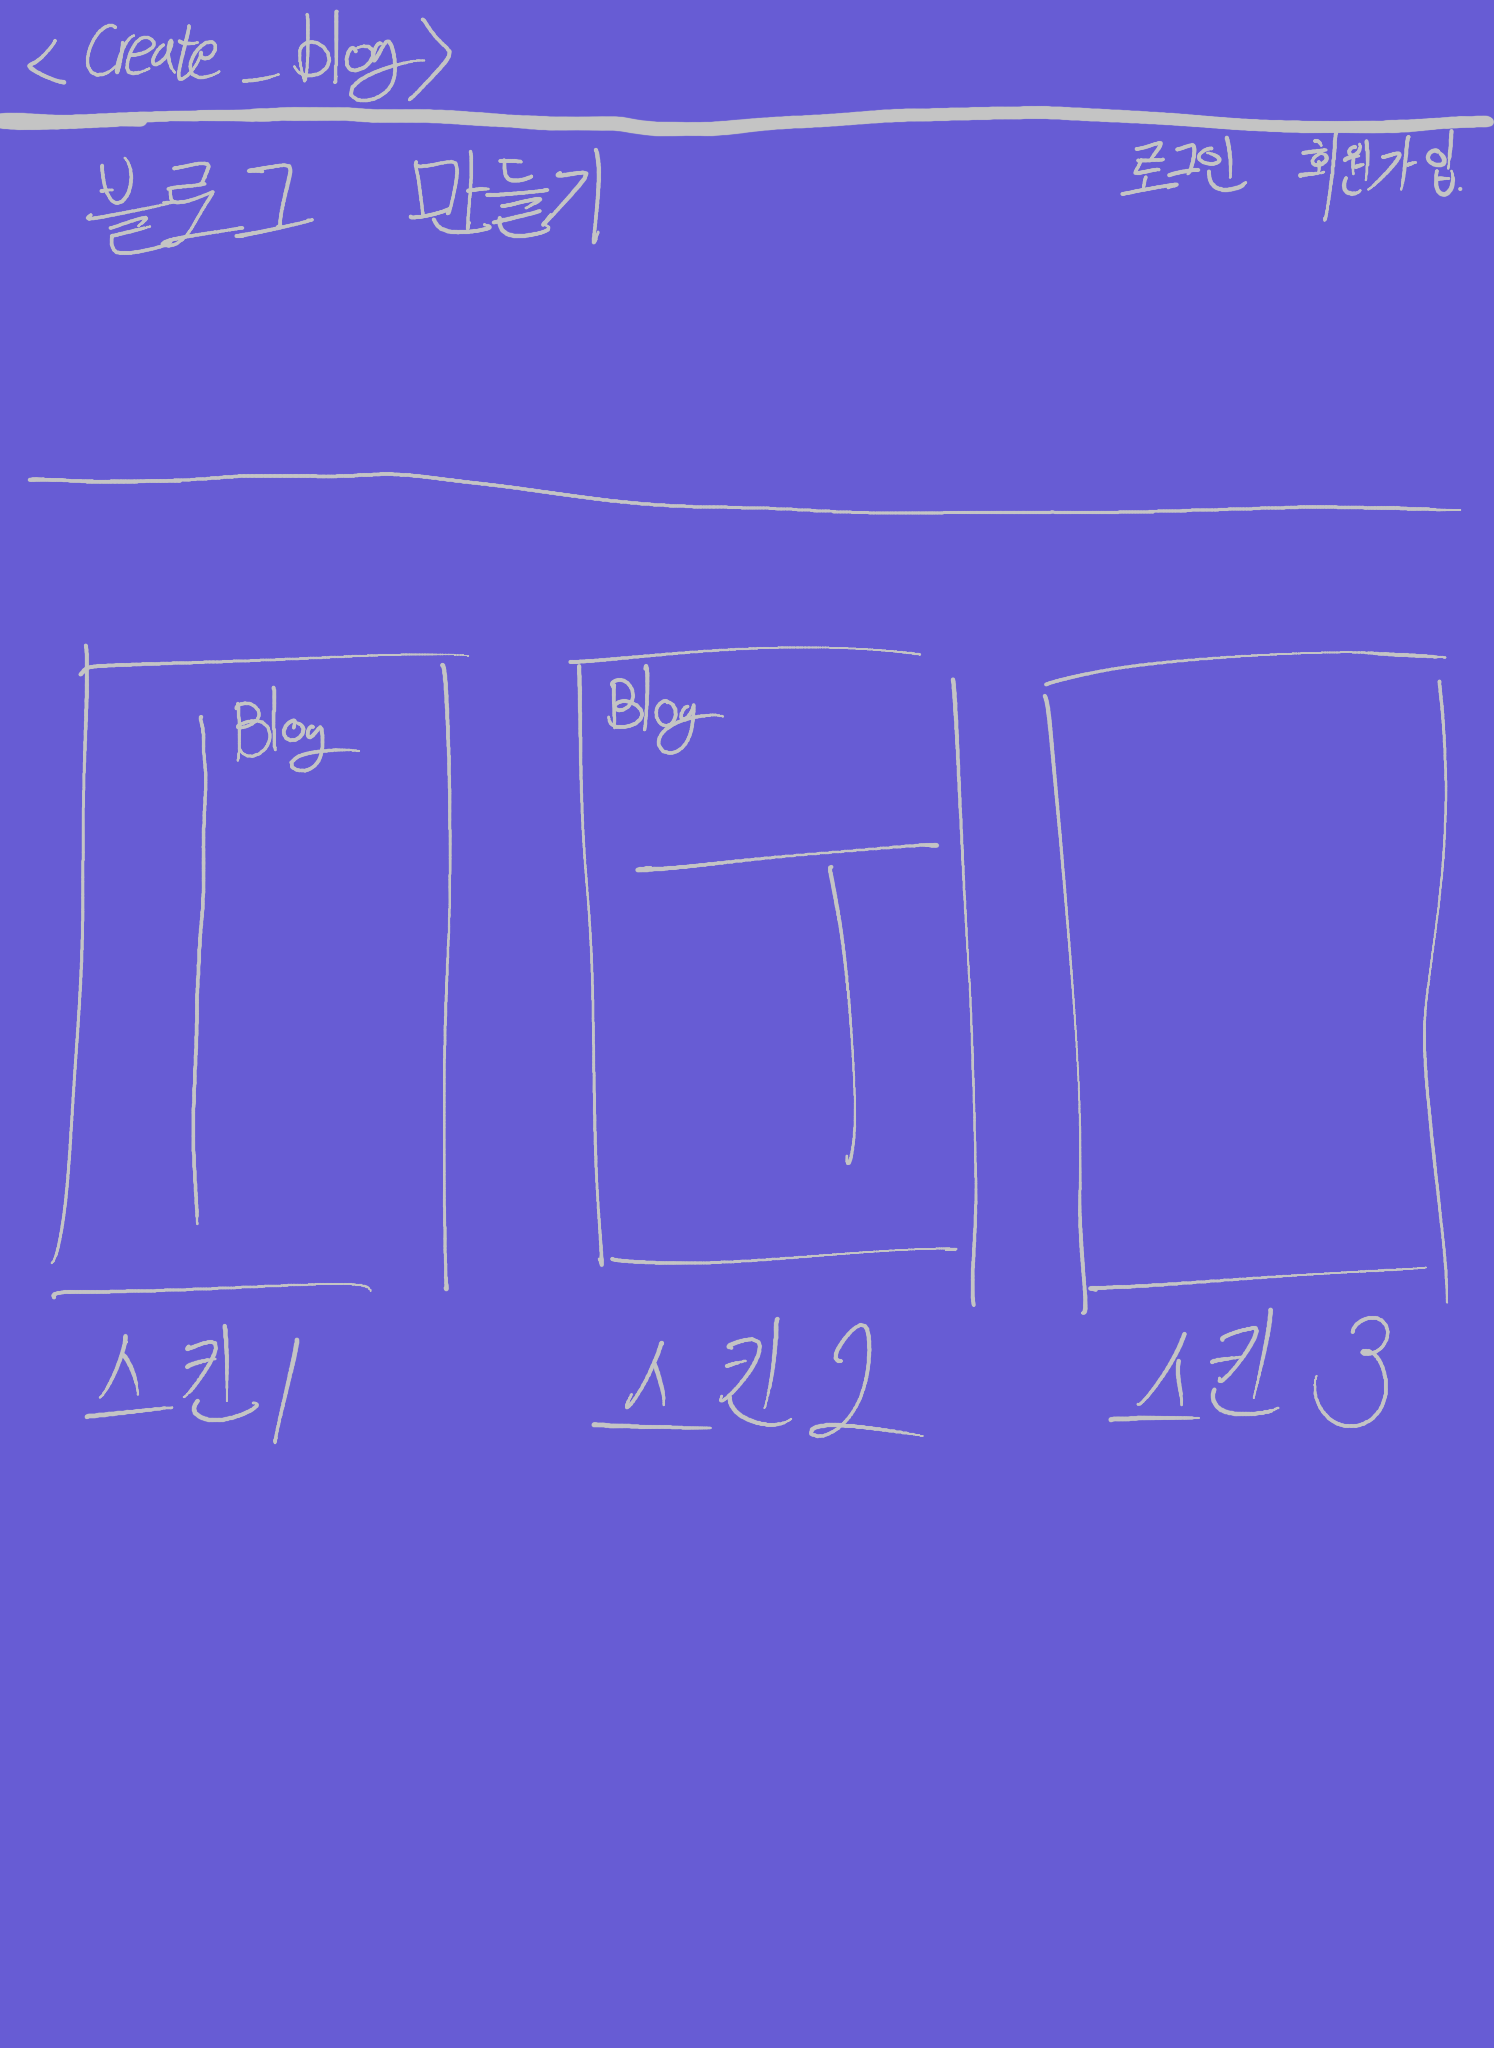 <Create_blog>
블로그 만들기 로그인 회원가입.
Blog Blog
스킨1 스킨2 스킨3